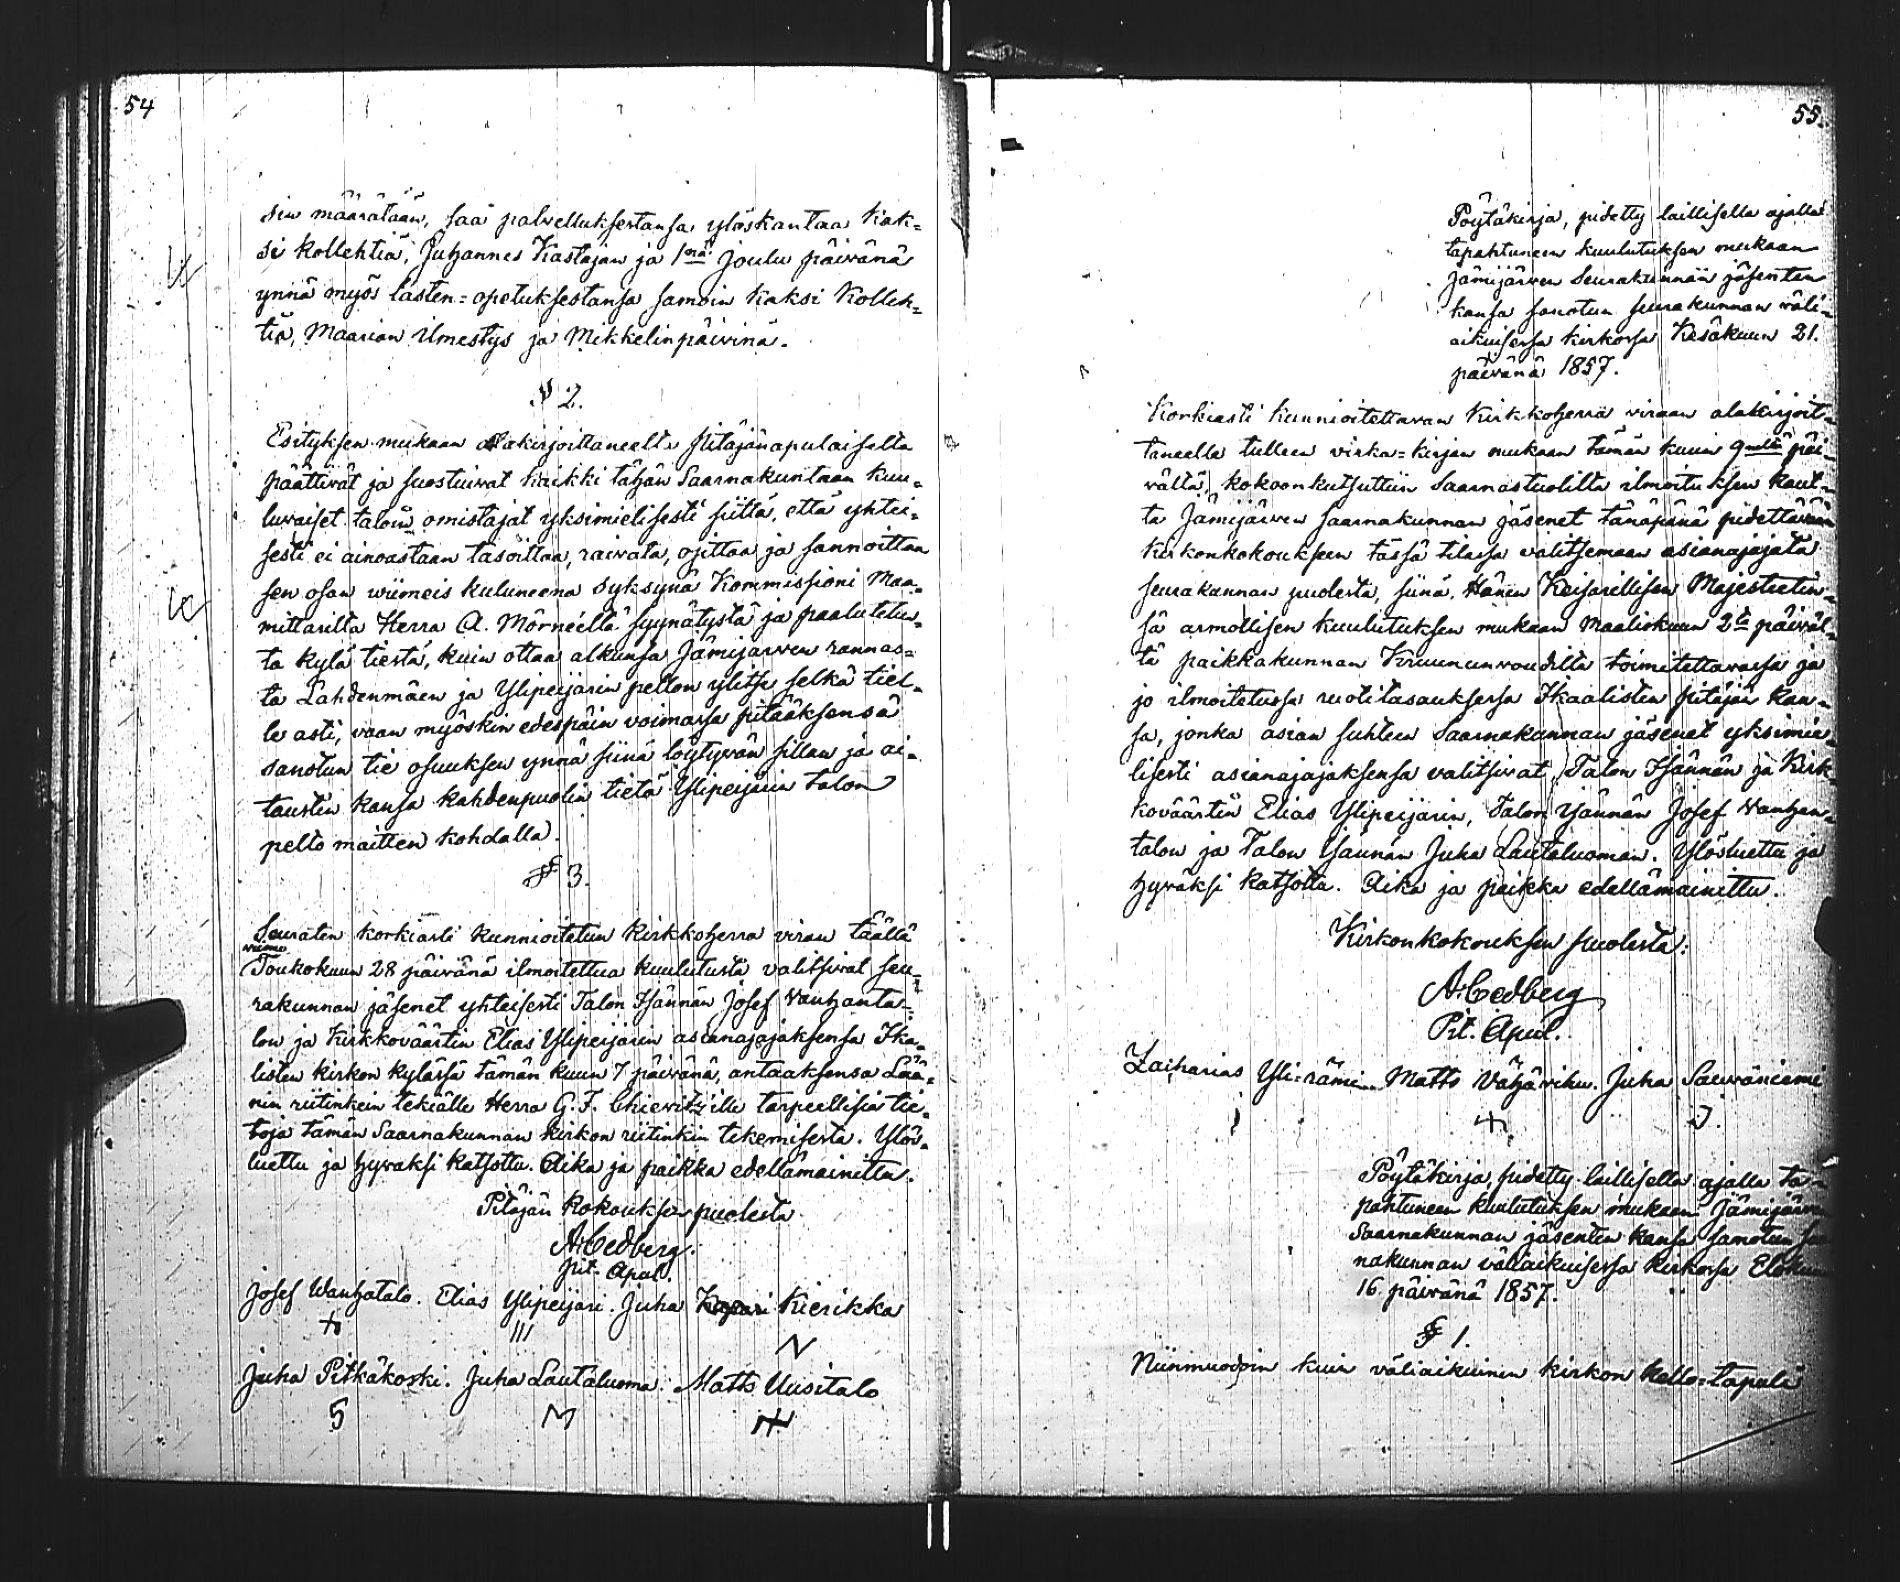 54
sin määrätään, saa palvelluksestansa ylöskantaa kak=
si kollehtiä, Juhannes Kastajan ja 1nä Joulu päivänä
ynnä myös lasten=opetuksestansa samoin kaksi Kolleh=
tia, Maarian ilmestys ja Mikkelinpäivinä.
§ 2.
Esityksen mukaan allakirjoittaneelta Pitäjänapulaiselta
päättivät ja suostuivat kaikki tähän Saarnakuntaan kuu=
luvaiset talon omistajat yksimielisesti siitä, että yhtei=
sesti ei ainoastaan tasoittaa, raivata, ojittaa ja sannoittaa
sen osan wiimeis kuluneena syksynä Kommissioni Maa=
mittarilta Herra A. Mörneéltä syynätystä ja paalutetus=
ta kylä tiestä, kuin ottaa alkunsa Jämijärwen rannas=
ta Lahdenmäen ja Ylipeijarin pellon ylitse selkä tiel=
le asti, vaan myöskin edespäin voimassa pitääksensä
sanotun tie osuuksen ynnä siinä löytyvän sillan ja ai=
tausten kansa kahdenpuolin tietä Ylipeijarin talon
pelto maitten kohdalla.
§ 3.
Seuraten korkiasti kunnioitetun Kirkkoherra viran täällä
viime
Toukokuun 28 päivänä ilmoitettua kuulutusta valitsivat seu=
rakunnan jäsenet yhteisesti Talon Isännän Josef Vanhanta=
lon ja Kirkkoväärtin Elias Ylipeijarin asianajajaksensa Ika=
listen kirkon kylässä tämän kuun 7 päivänä, antaaksensa Lää=
nin riitinkein tekiälle Herra G. T. Chiewitz'ille tarpeellisia tie=
toja tämän Saarnakunnan kirkon riitinkin tekemisestä. Ylös=
luettu ja hyväksi katsottu. Aika ja paikka edellämainittu.
Pitäjän kokouksen puolesta
A. Cedberg.
Pit. Apul.
Josef Wanhatalo. Elias Ylipeijari. Juha Kierikka
III N
Juha Pitkäkoski. Juha Lautaluoma. Matts Uusitalo
5 M
55.
Pöytäkirja, pidetty laillisella ajalla
tapahtuneen kuulutuksen mukaan
Jämijärwen Seurakunnan jäsenten
kansa sanotun seurakunnan väli=
aikuisessa kirkossa Kesäkuun 21.
päivänä 1857.
Korkiasti kunnioitettavan Kirkkoherra viraan alakirjoit=
taneella tulleen virka=kirjan mukaan tämän kuun 9nltä päi=
vältä, kokoonkutsuttiin Saarnastuolilta ilmoituksen kaut=
ta Jämijärwen saarnakunnan jäsenet tänäpänä pidettävään
Kirkonkokoukseen tässä tilassa valitsemaan asianajajata
seurakunnan puolesta, siinä, Hänen Keisarillisen Majesteetin=
sä armollisen kuulutuksen mukaan Maaliskuun 2ta päiväl=
tä paikkakunnan Kruununvoudilta toimitettavassa ja
jo ilmoitetussa ruotitasauksessa Ikaalisten pitäjän kan=
sa, jonka asian suhteen Saarnakunnan jäsenet yksimie=
lisesti asianajajaksensa valitsivat, Talon Isännän ja Kirk=
koväärtin Elias Ylipeijarin, Talon Isännän Josef Vanhan=
talon ja Talon Isännän Juha Lautaluoman. Ylösluettu ja
hyväksi katsottu. Aika ja paikka edellämainittu.
Kirkonkokouksen puolesta:
A. Cedberg
Pit. Apul.
Zacharias Yli=rämi Matts Vähäriku. Juha Sauvaniemi
Pöytäkirja, pidetty laillisella ajalla ta=
pahtuneen kuulutuksen mukaan Jämijärwen
Saarnakunnan jäsenten kansa samotun
nakunnan väliaikuisessa kirkossa Elokuun
16 päivänä 1857.
§ 1.
Niinmuodoin kuin väliaikuinen kirkon kello=tapuli